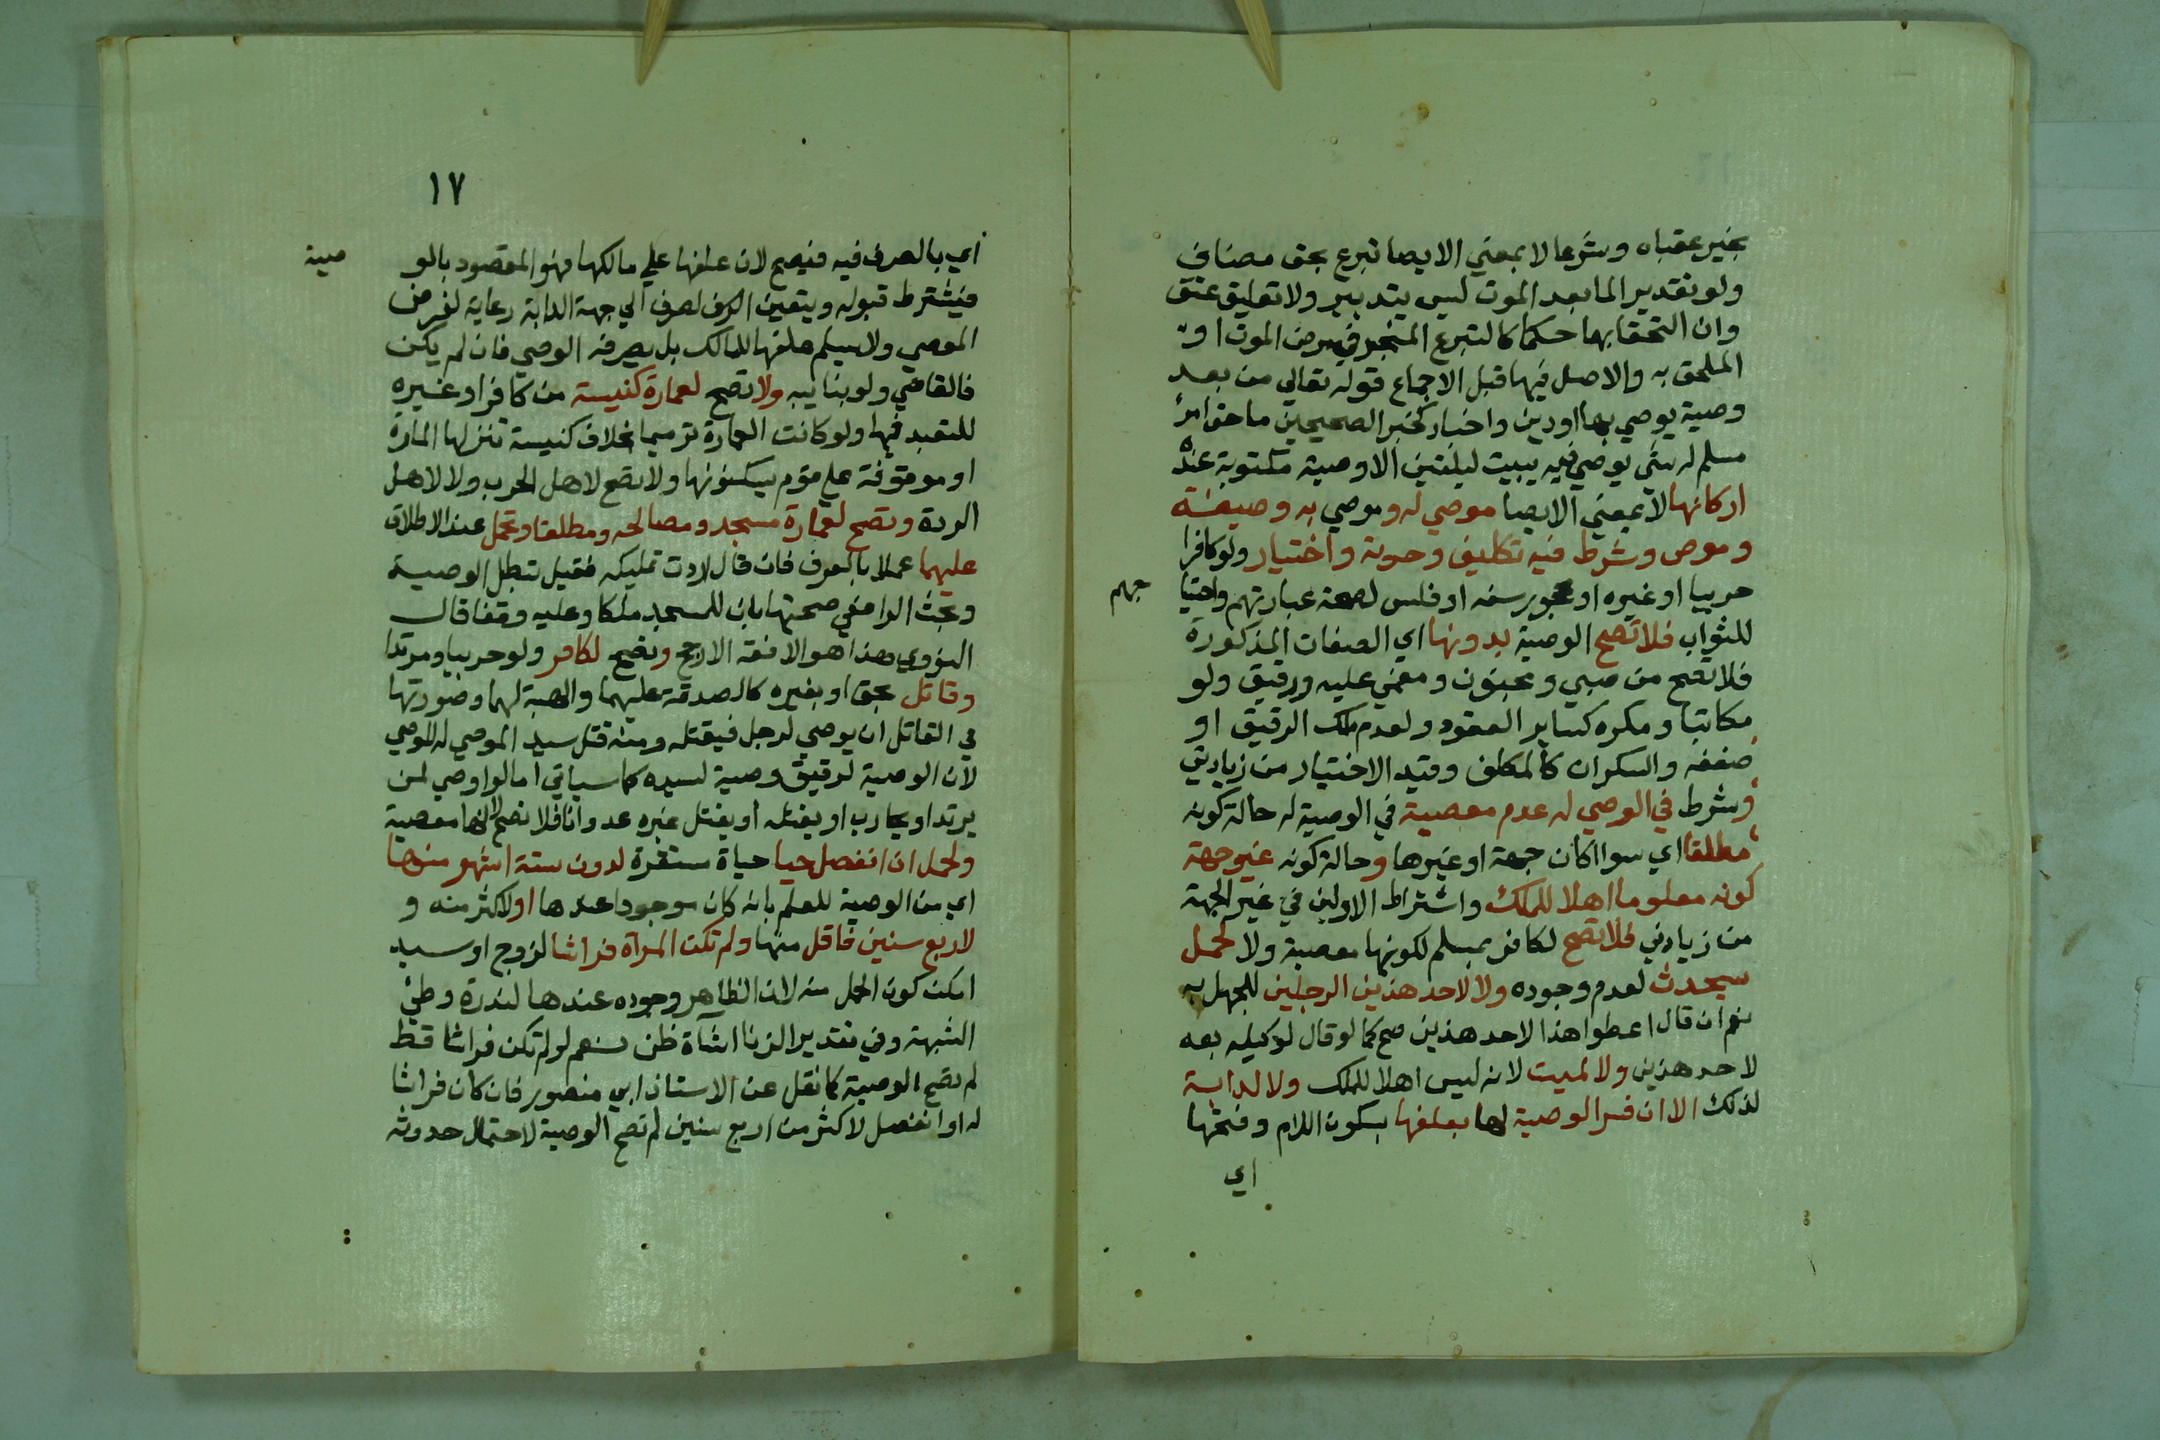 بخير عقباه وشرعا لا بمعني الايصا تبرع بحق مضاف
ولو تقديرا لما بعد الموت ليس بتدبير ولا تعليق عتق
وان التحقا بها حكما كالتبرع المنجز في مرض الموت او
الملحق به والاصل فيها قبل الاجماع قوله تعالي من بعد
وصية يوصي بها او دين واخبار كخبر الصحيحين ما حق امرئ
مسلم له شي يوصي فيه يبيت ليلتين الا ووصية مكتوبة عنده
اركانها لا بمعني الايصا موصي له وموصي به وصيغة
وموص وشرط فيه تكليف وحرية واختيار ولو كافرا
حربيا او غيره او محجور سفه او فلس لصحة عبارتهم واحتيا
جهم
للثواب فلا تصح الوصية بدونها اي الصفات المذكورة
فلا تصح من صبي ومجنون ومغمي عليه ورقيق ولو
مكاتبا ومكره كساير العقود ولعدم ملك الرقيق او
ضعفه والسكران كالمكلف وقيد الاختيار من زيادتي
وشرط في الموصي له عدم معصية في الوصية له حالة كونه
مطلقا اي سوا اكان جهة او غيرها وحالة كونه غير جهة
كونه معلوما اهلا للملك واشتراط الاولين في غير الجهة
من زيادتي فلا تصح لكافر بمسلم لكونها معصية ولا لحمل
سيحدث لعدم وجوده ولا لاحد هذين الرجلين للجهل به
نعم ان قال اعطوا هذا لاحد هذين صح كما لو قال لوكيله بعه
لاحد هذين ولا لميت لانه ليس اهلا للملك ولا لدابة
لذلك الا ان فسر الوصية لها بعلفها بسكون اللام وفتحها
اي
١٧
اي بالصرف فيه فيصح لان علفها علي مالكها فهو المقصود بالو
صية
فيشترط قبوله ويتعين الصرف الي جهة الدابة رعاية لغرض
الموصي ولا يسلم علفها للمالك بل يصرفه الوصي فان لم يكن
فالقاضي ولو بنايبه ولا تصح لعمارة كنيسة من كافر او غيره
للتعبد فيها ولو كانت العمارة ترميما بخلاف كنيسة تنزلها المارة
او موقوفة علي قوم يسكنونها ولا تصح لاهل الحرب ولا لاهل
الردة وتصح لعمارة مسجد ومصالحه ومطلقا وتحمل عند الاطلاق
عليهما عملا بالعرف فان قال اردت تمليكه فقيل تبطل الوصية
وبحث الرافعي صحتها بان للمسجد ملكا وعليه وقفا قال
النووي هذا هو الافقه الارجح وتصح لكافر ولو حربيا ومرتدا
وقاتل بحق او بغيره كالصدقة عليهما والهبة لهما وصورتها
في القاتل ان يوصي لرجل فيقتله ومنه قتل سيد الموصي له الموصي
لان الوصية لرقيق وصية لسيده كما سياتي اما لو اوصي لمن
يرتد او يحارب او يقتله او يقتل غيره عدوانا فلا تصح لانها معصية
ولحمل ان انفصل حيا حياة مستقرة لدون ستة اشهر منها
اي من الوصية للعلم بانه كان موجودا عندها او لاكثر منه و
لاربع سنين فاقل منها ولم تكن المراة فراشا لزوج او سيد
امكن كون الحمل منه لان الظاهر وجوده عندها لندرة وطئ
الشبهة وفي تقدير الزنا اساة ظن نعم لو لم تكن فراشا قط
لم تصح الوصية كما نقل عن الاستاذ ابي منصور فان كان فراشا
له او انفصل لاكثر من اربع سنين لم تصح الوصية لاحتمال حدوثه